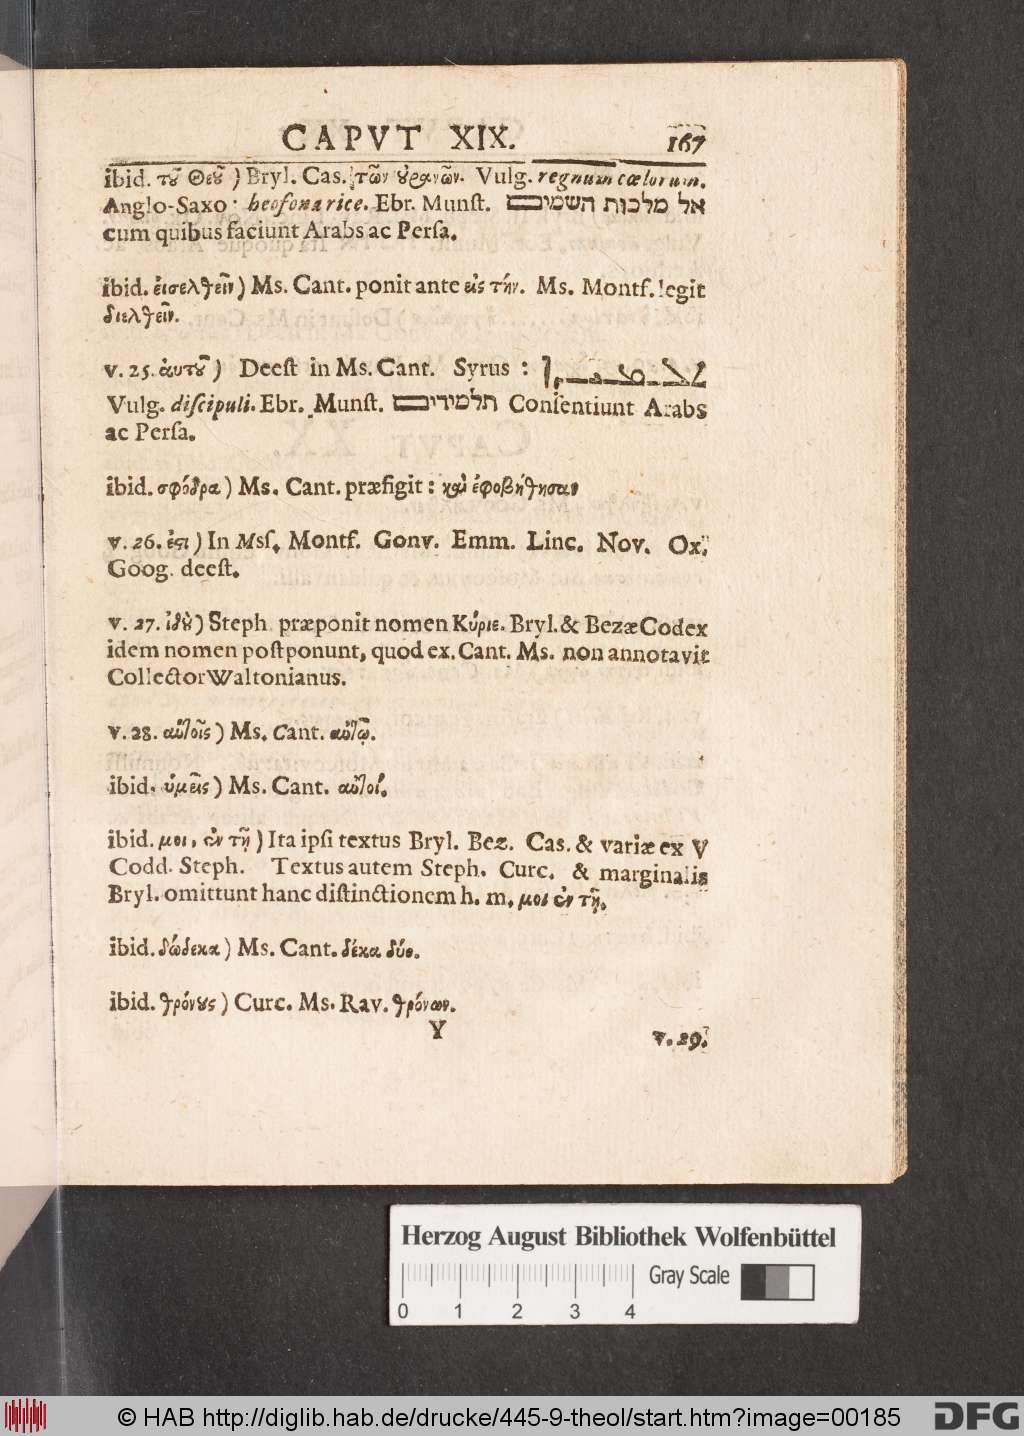 CAPVT XIX. 167
ibid. τȣ͂ Θεȣ͂ ) Bryl. Cas. τῶν ȣ̓ρανῶν. Vulg. regnum cœlorum.
Anglo-Saxo: heofona rice. Ebr. Munſt. אל מלכות השמים
cum quibus faciunt Arabs ac Perſa.
ibid. ἐισελθεῖν) Ms. Cant. ponit ante εἰς τήν. Ms. Montf. legit
διελθεῖν.
v. 25. ἀυτȣ͂ ) Deeſt in Ms. Cant. Syrus :
Vulg. diſcipuli. Ebr. Munſt. תלמידים Conſentiunt Arabs
ac Perſa.
ibid. σφόδρα) Ms. Cant. præfigit: καὶ ἐφοβήθησαν
v. 26. ἐςι ) In Msſ. Montf. Gonv. Emm. Linc. Nov. Ox.
Goog. deeſt.
v. 27. ἰδȣ̀) Steph. præponit nomen Κύριε. Bryl. & Bezæ Codex
idem nomen poſtponunt, quod ex. Cant. Ms. non annotavit
Collector Waltonianus.
v. 28. αὐτοῖς ) Ms. Cant. αὐτῷ.
ibid. ὑμεῖς ) Ms. Cant. αὐτοί.
ibid. μοι, ἐν τῇ ) Ita ipſi textus Bryl. Bez. Cas. & variæ ex V
Codd. Steph. Textus autem Steph. Curc. & marginalis
Bryl. omittunt hanc diſtinctionem h. m. μοι ἐν τῇ.
ibid. δώδεκα) Ms. Cant. δέκα δύο.
ibid. θρόνȣς ) Curc. Ms. Rav. θρόνων.
Y v. 29.
Herzog August Bibliothek Wolfenbüttel
Gray Scale
0 1 2 3 4
© HAB http://diglib.hab.de/drucke/445-9-theol/start.htm?image=00185 DFG